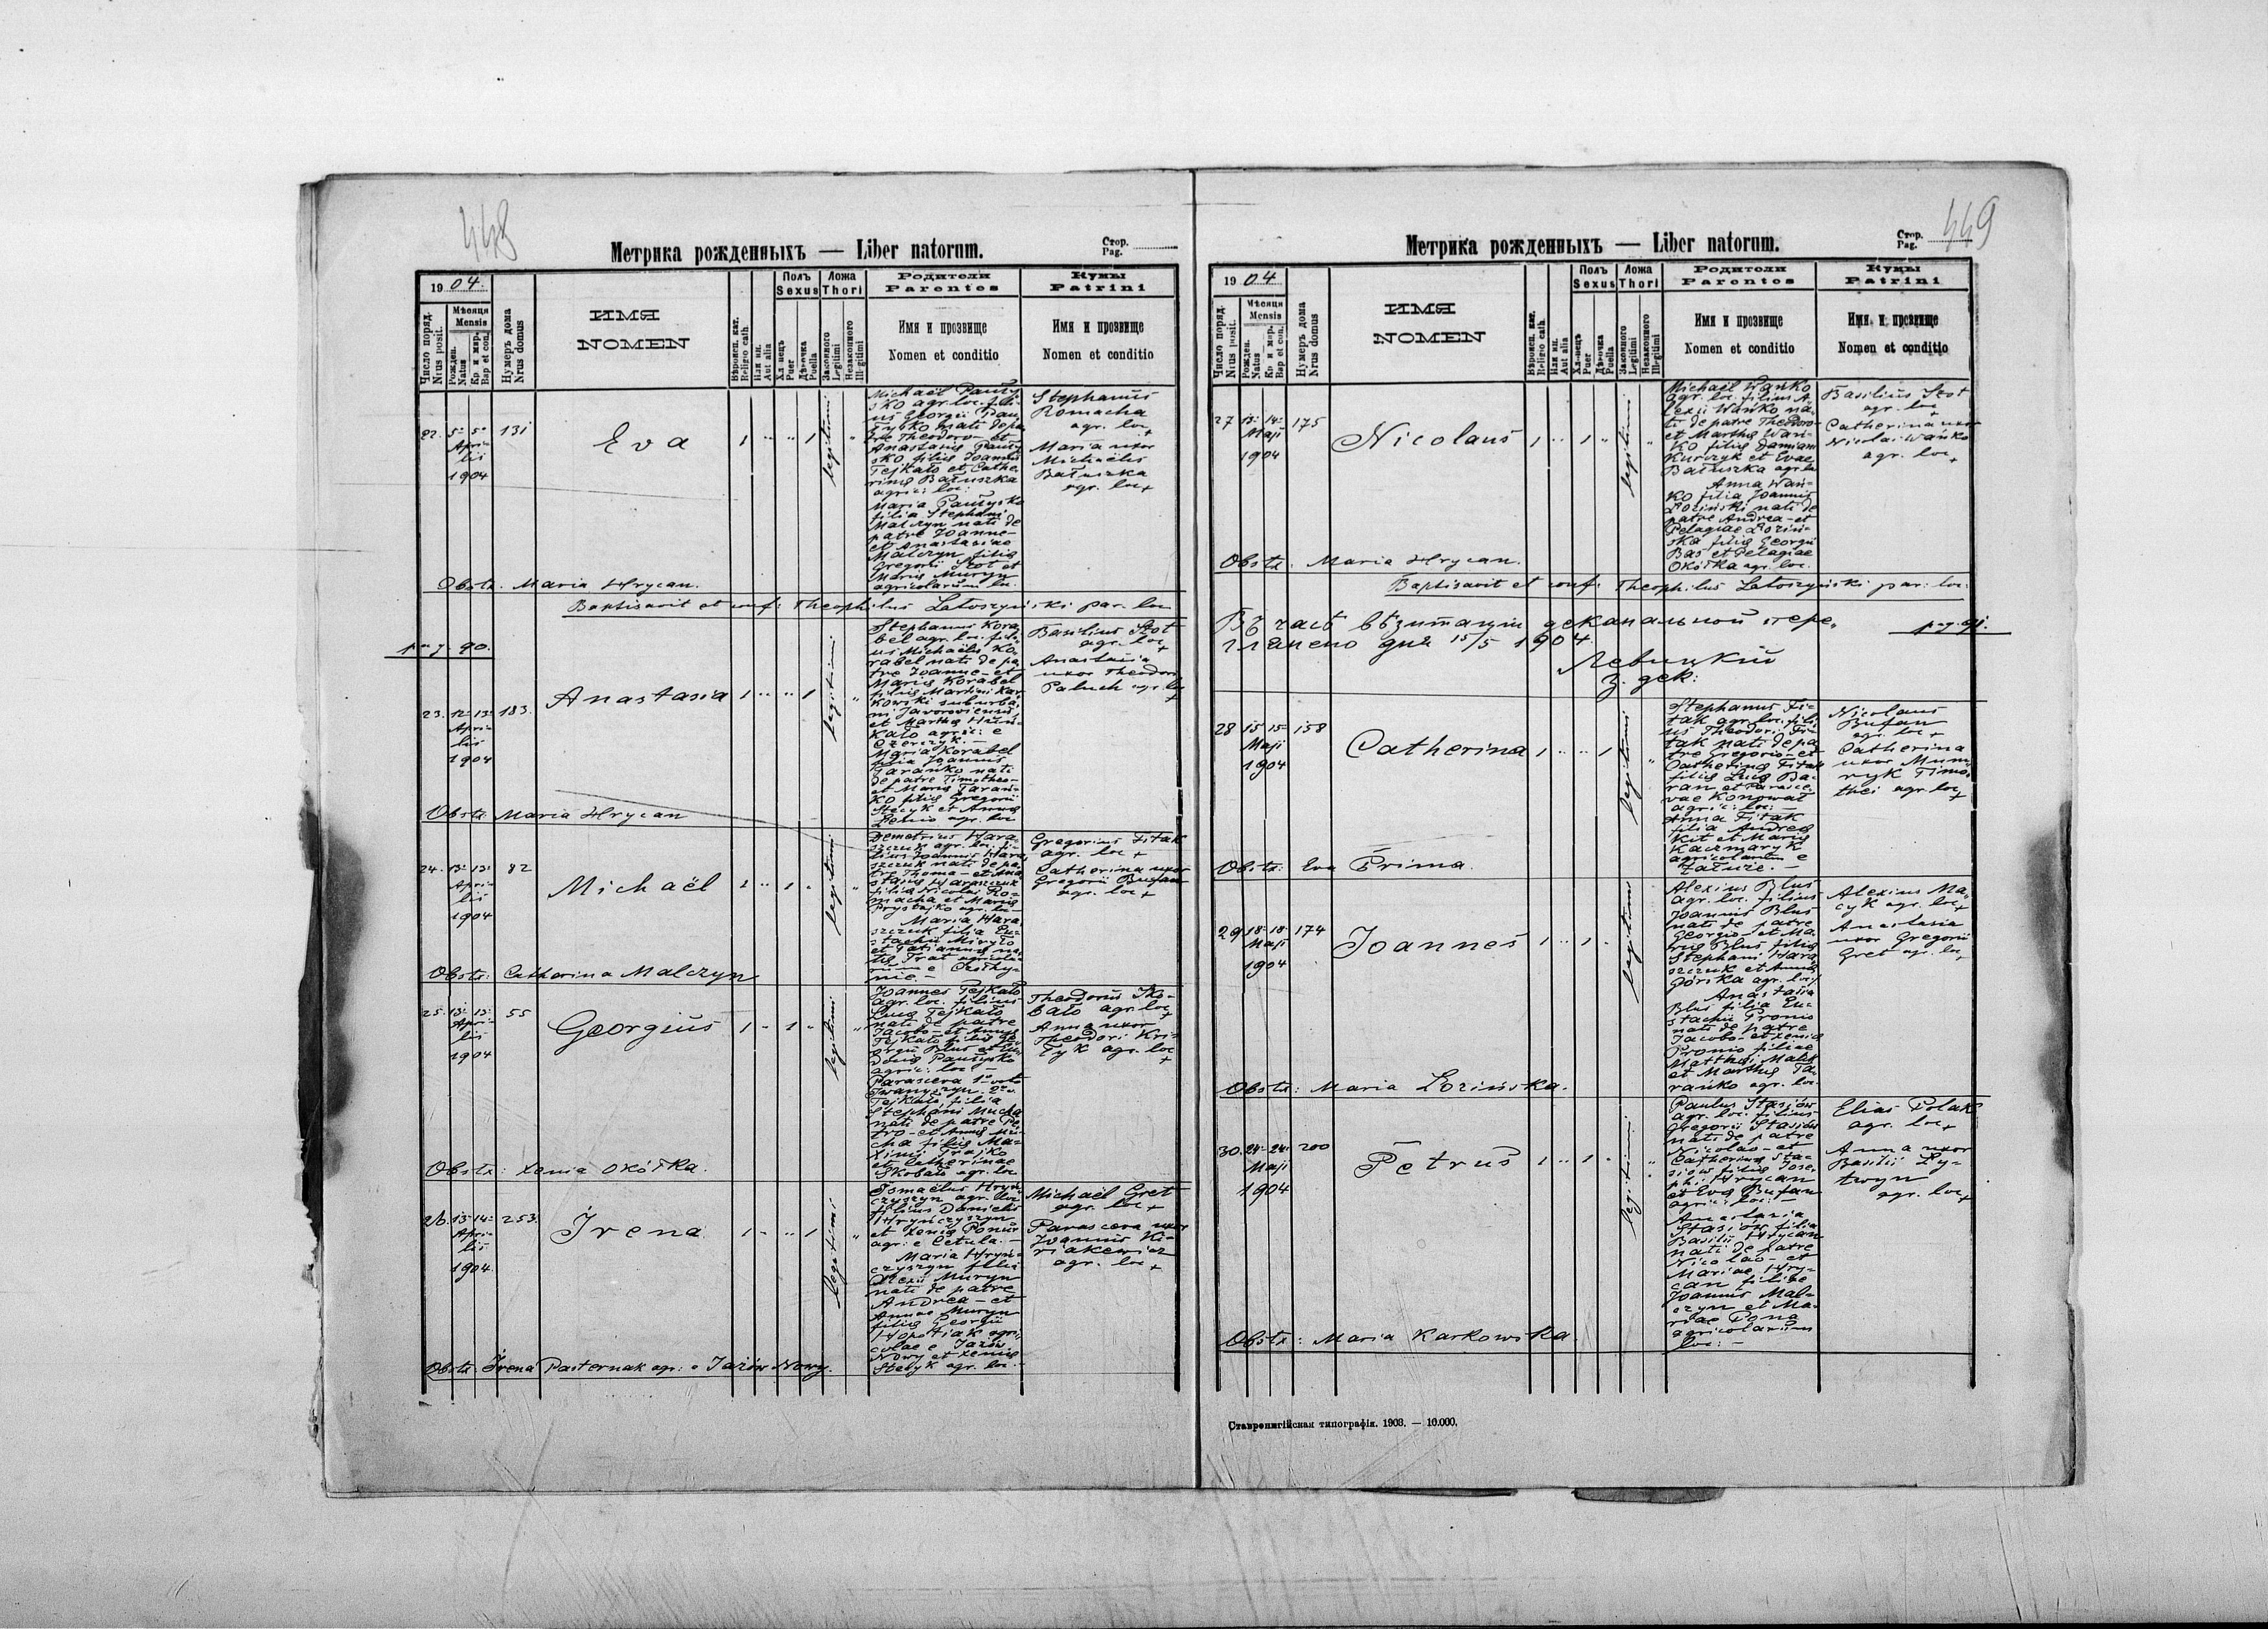 448
Метрика рожденныхъ — Liber natorum.
Стор.
Pag.
1904.
Число поряд.
Nrus posit.
Мѣсяця
Mensis
Рожден.
Natus
Кр и мѵр.
Bap et con.
Нумеръ дома
Nrus domus
ИМЯ
NOMEN
Вѣроисп. кат.
Religio cath.
Или ин.
Aut alia
Полъ
Sexus
Хлопецъ
Puer
Дѣвочка
Puella
Ложа
Thori
Законного
Legitimi
Незаконного
Illegitimi
Родители
Parentes
Имя и прозвище
Nomen et conditio
Кумы
Patrini
Имя и прозвище
Nomen et conditio
22. 5= 5= 131
Apri-
lis
1904
Eva
1 " " 1 legitimi "
Michaël Pauły
sko agr. loc. fili
us Georgii Pau
łysko nati de pa
tre Theodoro - et
Anastasiae Pauły
sko filiae Joannis
Tejkało et Cathe
rinae Bałuszka
agric: loc:
Maria Paułysko
filia Stephani
Malczyn nati de
patre Joanne -
et Anastasiae
Malczyn filiae
Gregorii Szot et
Mariae Muryn
agricolarum loc.
Stephanus
Romacha
agr. loc +
Maria uxor
Michaëlis
Bałuszka
agr. loc +
Obstx. Maria Hrycan.
Baptisavit et conf: Theophilus Łatoszyński par. loc
pag. 90.
23. 12= 13= 183.
Apri-
lis
1904
Anastasia
1 " " 1 legitimi "
Stephanus Kora
bel agr. loc. fili
us Michaëlis Ko
rabel nati de pa
tre Joanne - et
Mariae Korabel
filiae Martini Kar
kowski suburba
ni Javoroviensis
et Marthae Hun
kało agric: e
Czerczyk. -
Maria Korabel
filia Joannis
Tarańko nati
de patre Timotheo -
et Mariae Tarań-
ko filiae Gregorii
Stecyk et Annae
agr. loc
Basilius Szot
agr. loc +
Anastasia
uxor Theodori
Paluch agr. loc +
Obstx Maria Hrycan
24. 13= 13= 82
Apri-
lis
1904
Michaël
1 " 1 " legitimi "
Demetrius Hara
szczuk agr. loc. fi-
lius Joannis Hara
szczuk nati de pa
tre Thoma - et Ana
stasiae Haraszczuk
filiae Nicolai Ro-
macha et Mariae
Prystajko agr. loc -
Maria Hara
szczuk filia Eu-
stachii Miryło
et Tatiannae na
tae Trat agricola
rum e Czołhy-
nie -
Gregorius Fitak
agr. loc +
Catherina uxor
Gregorii Bufan
agr. loc +
Obstx: Catharina Malczyn
25. 13= 13= 55
Apri-
lis
1904
Georgius
1 " 1 " legitimi "
Joannes Tejkało
agr. loc. filius
Lucae Tejkało
nati de patre
Jacobo - et Annae
Tejkało filiae Ge
orgii Blus et Eu
dociae Paułysko
agric: loc -
Parasceva 1= voto
Iwanyszyn 2= v.
Tejkało, filia
Stephani Mucha
nati de patre Pe
tro - et Annae Mu
cha filiae Ma-
ximi Trajko
et Catherinae
Skobało agr. loc.
Theodorus Sko-
bało agr. loc +
Anna uxor
Theodori Kri-
łyk agr. loc +
Obstx: Xenia Okółka.
26. 13= 14= 253.
Apri-
lis
1904
Irena
1 " " 1 legitimi "
Ismaëlus Hryń
czyszyn agr. loc
filius Danielis
Hryńczyszyn
et Xeniae Ponur
agr: e Cetula. -
Maria Hryń-
czyszyn filia
Alexii Muryn
nati de patre
Andrea - et
Annae Muryn
filiae Georgii
Hopotiak agri
colae e Jażów
Nowy et Xeniae
Stecyk agr. loc. -
Michaël Gret
agr. loc +
Parasceva uxor
Joannis Ki-
riakewicz
agr. loc +
Obstx Irena Pasternak agr: e Jażów Nowy.
449
Метрика рожденныхъ — Liber natorum.
Стор.
Pag.
1904
Число поряд.
Nrus posit.
Мѣсяця
Mensis
Рожден.
Natus
Кр и мѵр.
Bap et con.
Нумеръ дома
Nrus domus
ИМЯ
NOMEN
Вѣроисп. кат.
Religio cath.
Или ин.
Aut alia
Полъ
Sexus
Хлопецъ
Puer
Дѣвочка
Puella
Ложа
Thori
Законного
Legitimi
Незаконного
Illegitimi
Родители
Parentes
Имя и прозвище
Nomen et conditio
Кумы
Patrini
Имя и прозвище
Nomen et conditio
27 13= 14= 175
Maji
1904
Nicolaus
1 " 1 " legitimi "
Michaël Wańko
agr. loc. filius A
lexii Wańko na
ti de patre Theodoro -
et Marthae Wań-
ko filiae Damiani
Kurczyk et Evae
Bałuszka agr loc
Anna Wań-
ko filia Joannis
Łoziński nati de
patre Andrea - et
Pelagiae Łoziń-
ska filiae Georgii
Bas et Pelagiae
Okółka agr. loc.
Basilius Szot
agr. loc +
Catherina uxor
Nicolai Wańko
agr. loc +
Obstx. Maria Hrycan.
Baptisavit et conf. Theophilus Łatoszyński par. loc.
Въ часѣ визитаціи деканальной пере-
глянено дня 15/5 1904.
pag. 91.
Левицкій
з. дек:
28 15 15= 158
Maji
1904
Catherina
1 " " 1 legitimi "
Stephanus Fi-
tak agr. loc. fili
us Theodori Fi-
tak nati de pa
tre Gregorio - et
Catherinae Fitak
filiae Lucae Ba-
ran et Parasce-
vae Konował
agric: loc: -
Anna Fitak
filia Andreae
Kit et Mariae
Kaczmaryk
agricolarum e
Załuże. -
Nicolaus
Bufan
agr. loc +
Catherina
uxor Mum
ryk Timo-
thei agr loc +
Obstx: Eva Prima.
29 18= 18= 174
Maji
1904
Joannes
1 " 1 " legitimi
Alexius Blus
agr. loc. filius
Joannis Blus
nati de patre
Georgio - et Ma
riae Blus filiae
Stephani Hara
szczuk et Annae
Górska agr. loc/
Anastasia
Blus filia Eu-
stachii Pronio
nati de patre
Jacobo - et Xeniae
Pronio filiae
Matthaei Malek
et Marthae Ta-
rańko agr. loc.
Alexius Ma-
cyk agr. loc +
Anastasia
uxor Gregorii
Gret agr. loc +
Obstx: Maria Łozińska.
30. 24= 24= 200
Maji
1904
Petrus
1 " 1 " legitimi "
Paulus Stasiów
agr. loc. filius
Gregorii Stasiów
nati de patre
Nicolao - et
Catherinae Sta-
siów filiae Jose-
phi Hrycan
et Evae Bufan
agric: loc: -
Anastasia
Stasiów filia
Basilii Hrycan
nati de patre
Nicolao - et
Mariae Hry-
can filiae
Joannis Mal-
czyn et Ma-
riae Dona
agricolarum
loc: -
Elias Polak
agr. loc +
Anna uxor
Basilii Ły-
twyn
agr. loc +
Obstx: Maria Karkowska
Ставропигійская типографія. 1903. — 10.000.